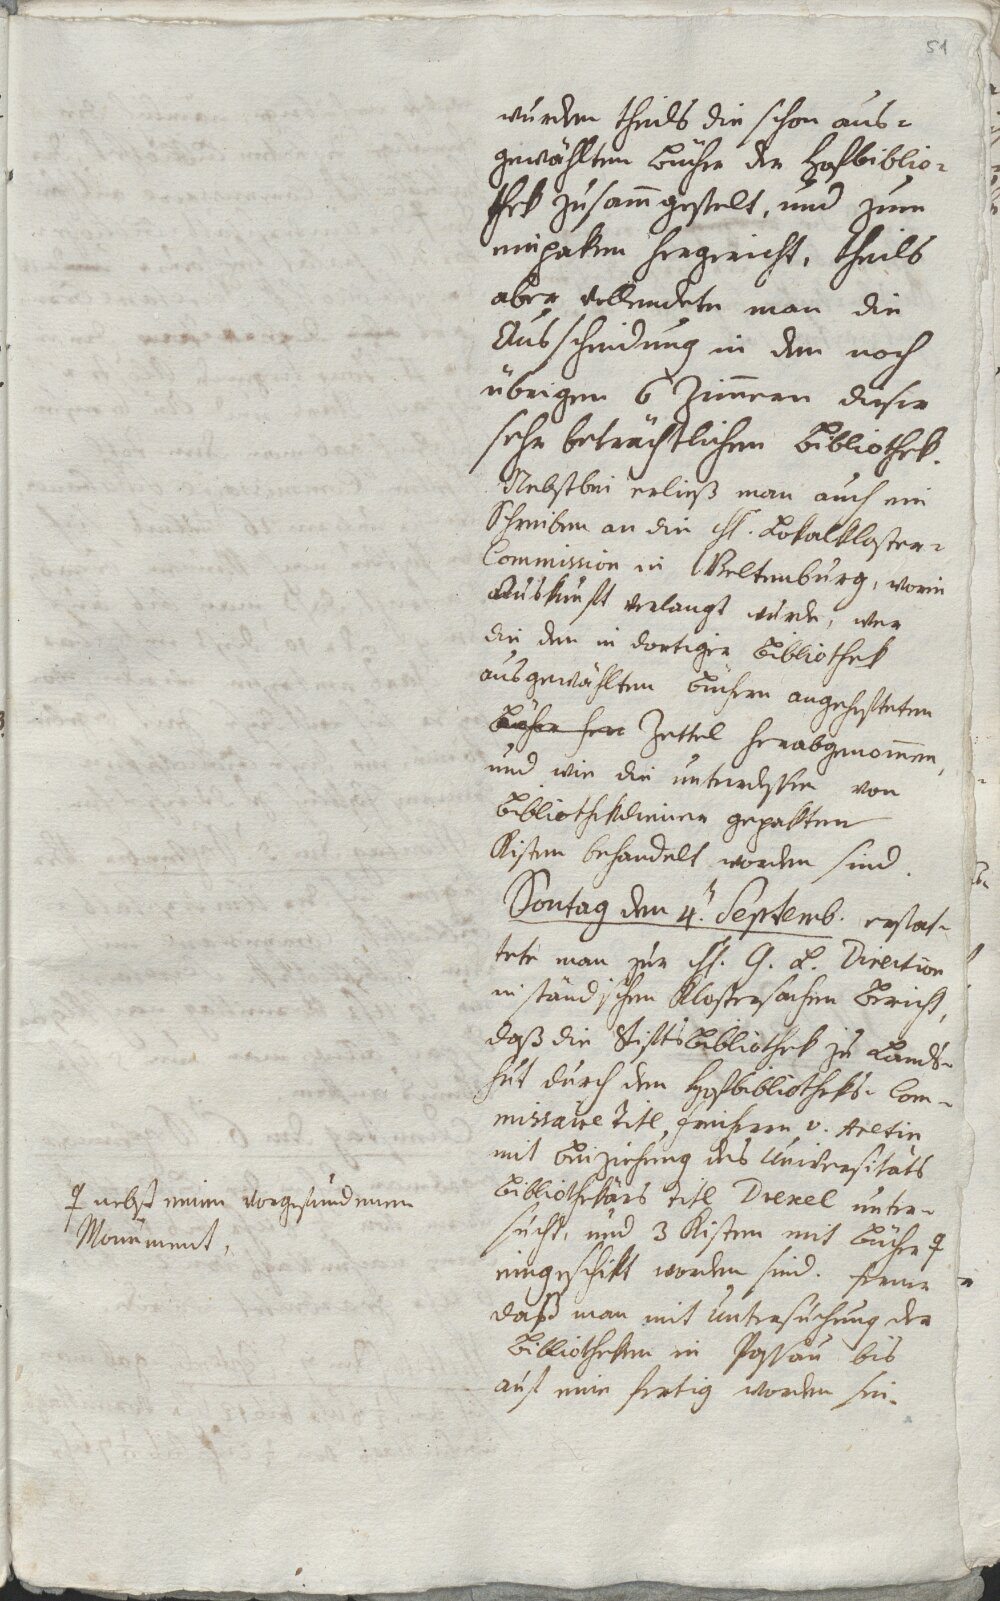 51
wurden theils die schon aus-
gewählten Bücher der Hofbiblio-
thek zusam̄gestelt, und zum
einpaken hergericht, theils
aber vollendete man die
Ausscheidung in den noch
übrigen 6 Zim̄ern dieser
sehr beträchtlichen Bibliothek.
Nebstbei erließ man auch ein
Schreiben an die kfl. Lokalkloster-
Commission in Weltenburg, worin
Auskunft verlangt wurde, wer
die den in dortiger Bibliothek
ausgewählten Büchern angehefteten
Bücher her Zettel herabgenom̄en,
und wie die unterdessen von
Bibliothekdiener gepakten
Kisten behandelt worden sind.
Sontag den 4.t Septemb. erstat-
tete man zur kfl. G. L. Direction
in ständischen Klostersachen Bericht,
daß die Stiftsbibliothek zu Lands-
hut durch den Hofbibliotheks-Com-
missaire Titl. Freiherrn v. Aretin
mit Beiziehung des Universitäts
Bibliothekärs Titl Drexel unter-
sucht, und 3 Kisten mit Bücher ♀
eingeschikt worden sind. ferner
daß man mit Untersuchung der
Bibliotheken in Passau bis
auf eine fertig worden sei.
♀ nebst einem vorgefundenen
Monument,